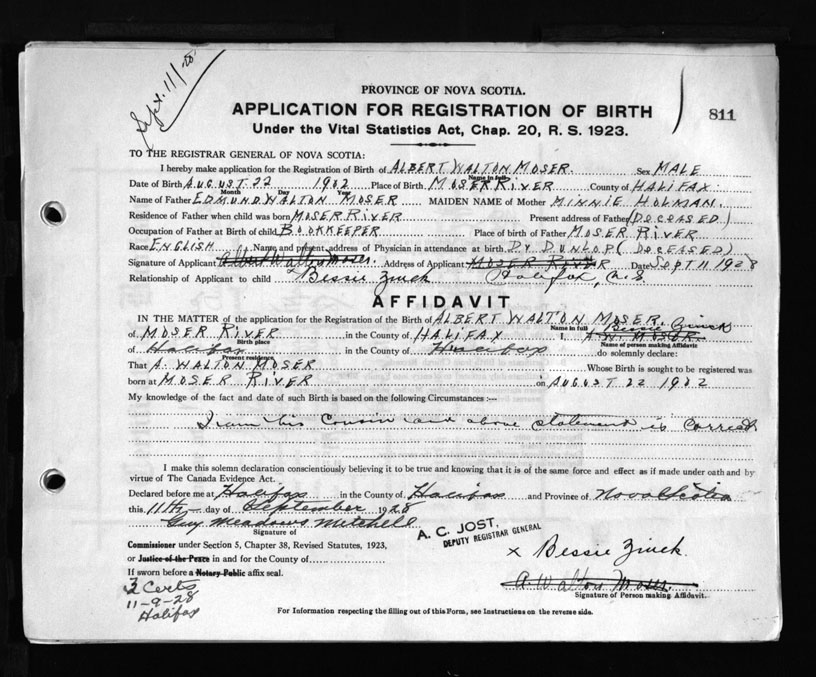 Sept. 11/28
PROVINCE OF NOVA SCOTIA.
APPLICATION FOR REGISTRATION OF BIRTH
811
Under the Vital Statistics Act, Chap. 20, R. S. 1923.
TO THE REGISTRAR GENERAL OF NOVA SCOTIA:
I hereby make application for the Registration of Birth of ALBERT WALTON MOSER. Sex MALE
Name in full
Date of Birth AUGUST 22 1902 Place of Birth MOSER RIVER County of HALIFAX.
Month Day Year
Name of Father EDMUND WALTON MOSER MAIDEN NAME of Mother MINNIE HOLMAN.
Residence of Father when child was born MOSER RIVER Present address of Father (DECEASED)
Occupation of Father at Birth of child BOOKKEEPER Place of birth of Father MOSER RIVER
Race ENGLISH Name and present address of Physician in attendance at birth DR DUNLOP (DECEASED)
Signature of Applicant Albert Walton Moser. Address of Applicant MOSER RIVER Date SEPT 11 1928
Relationship of Applicant to child Bessie Zinck Halifax, N.S.
AFFIDAVIT
IN THE MATTER of the application for the Registration of the Birth of ALBERT WALTON MOSER.
Name in full Bessie Zinck
of MOSER RIVER in the County of HALIFAX I, A. W. MOSER
Birth place Name of person making Affidavit
of Halifax in the County of Halifax do solemnly declare:
Present residence
That A. WALTON MOSER Whose Birth is sought to be registered was
born at MOSER RIVER on AUGUST 22 1902
My knowledge of the fact and date of such Birth is based on the following Circumstances :—
I am his Cousin and above statement is Correct
I make this solemn declaration conscientiously believing it to be true and knowing that it is of the same force and effect as if made under oath and by
virtue of The Canada Evidence Act.
Declared before me at Halifax in the County of Halifax and Province of Nova Scotia
this 11th day of September 1928
Guy Meadows Mitchell
Signature of
A. C. JOST,
DEPUTY REGISTRAR GENERAL
Commissioner under Section 5, Chapter 38, Revised Statutes, 1923,
x Bessie Zinck.
or Justice of the Peace in and for the County of
If sworn before a Notary Public affix seal.
A Walton Moser
Signature of Person making Affidavit.
2 Certs
11-9-28
Halifax
For Information respecting the filling out of this Form, see Instructions on the reverse side.